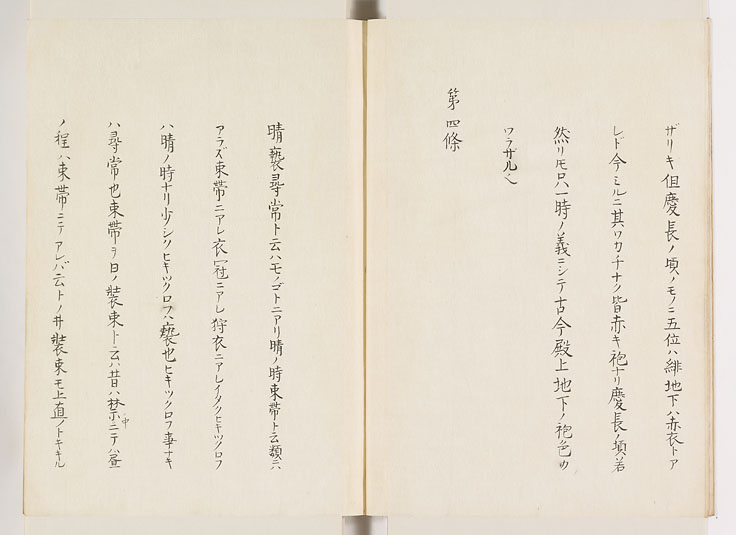 ザリキ但慶長ノ頃ノモノニ五位ハ緋地下ハ赤衣トア
レド今ミルニ其ワカチナク皆赤キ袍ナリ慶長ノ頃若
然リトモ只一時ノ義ニシテ古今殿上地下ノ袍色カ
ワラザル也
第四條
晴褻尋常ト云ハモノゴトニアリ晴ノ時束帯ト云類ニハ
アラズ束帯ニアレ衣冠ニアレ狩衣ニアレイタクヒキツクロフ
ハ晴ノ時ナリ少シクヒキツクロフハ褻也ヒキツクロフ事ナキ
ハ尋常也束帯ヲ日ノ裝束ト云ハ昔ハ禁中ニテハ昼
ノ程ハ束帯ニテアレバ云トノ井裝束モ上直ノトキキル